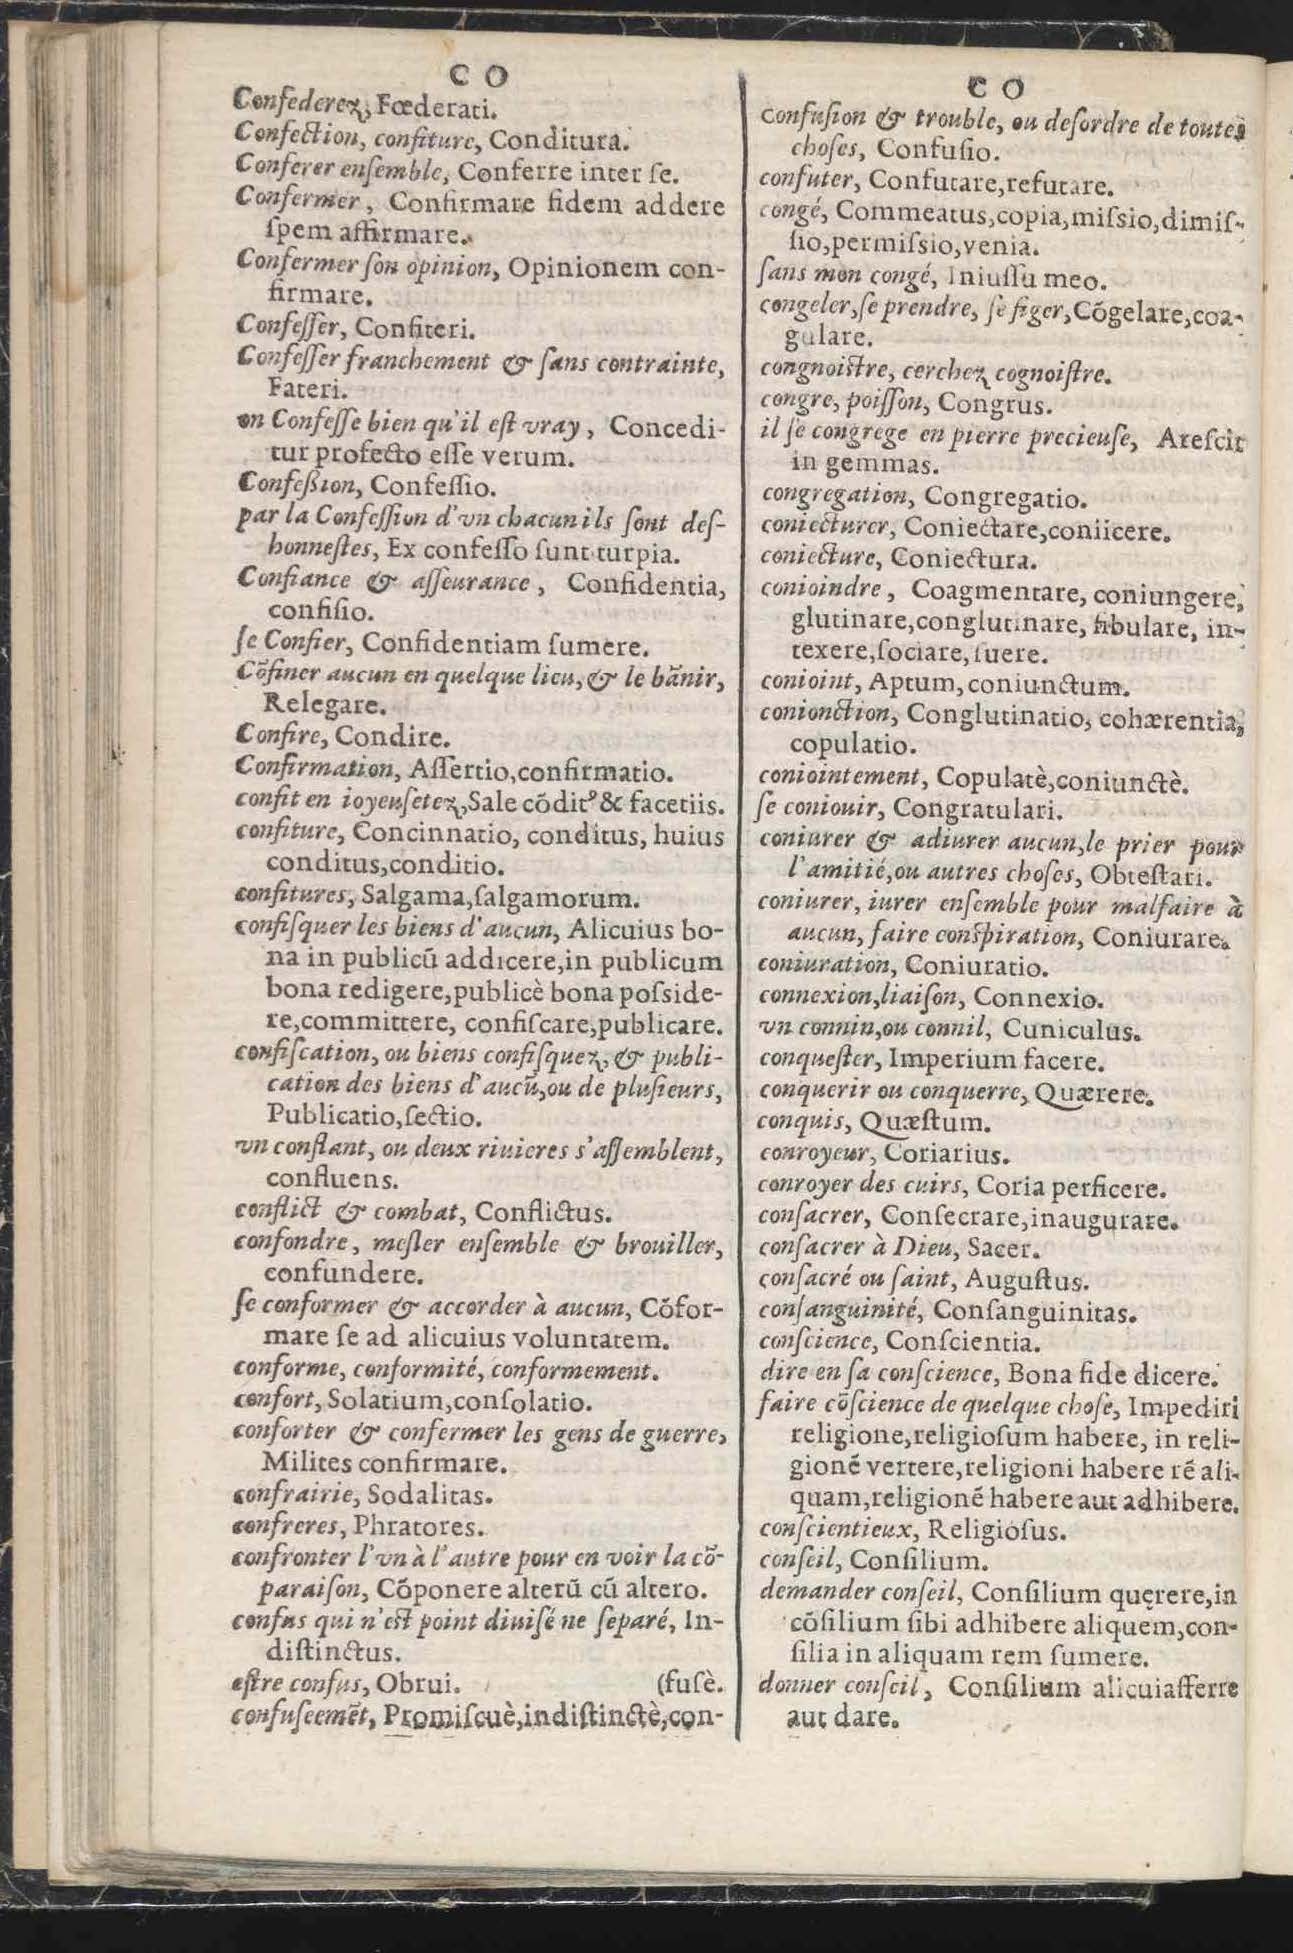 C O
Confederez, Fœderati.
Confection, confiture, Conditura.
Conferer enſemble, Conferre inter ſe.
Confermer, Confirmare fidem addere
ſpem affirmare.
Confermer ſon opinion, Opinionem con-
firmare.
Confeſſer, Confiteri.
Confeſſer franchement & ſans contrainte,
Fateri.
on Confeſſe bien qu'il eſt vray, Concedi-
tur profecto eſſe verum.
Confeßion, Confeſſio.
par la Confeſſion d'vn chacun ils ſont deſ-
honneſtes, Ex confeſſo ſunt turpia.
Confiance & aſſeurance, Confidentia,
confiſio.
ſe Confier, Confidentiam ſumere.
Cõfiner aucun en quelque lieu, & le bãnir,
Relegare.
Confire, Condire.
Confirmation, Aſſertio,confirmatio.
confit en ioyeuſetez,Sale cõdit⁹ & facetiis.
confiture, Concinnatio, conditus, huius
conditus,conditio.
confitures, Salgama,ſalgamorum.
confiſquer les biens d'aucun, Alicuius bo-
na in publicũ addicere,in publicum
bona redigere,publicè bona poſside-
re,committere, confiſcare,publicare.
confiſcation, ou biens confiſquez, & publi-
cation des biens d'aucũ,ou de pluſieurs,
Publicatio,ſectio.
vn conflant, ou deux riuieres s'aſſemblent,
confluens.
conflict & combat, Conflictus.
confondre, meſler enſemble & brouiller,
confundere.
ſe conformer & accorder à aucun, Cõfor-
mare ſe ad alicuius voluntatem.
conforme, conformité, conformement.
confort, Solatium,conſolatio.
conforter & confermer les gens de guerre,
Milites confirmare.
confrairie, Sodalitas.
confreres, Phratores.
confronter l'vn à l'autre pour en voir la cõ-
paraiſon, Cõponere alterũ cũ altero.
confus qui n'eſt point diuiſé ne ſeparé, In-
diſtinctus.
eſtre confus, Obrui. (fusè.
confuſeemẽt, Promiſcuè,indiſtinctè,con-
C O
Confuſion & trouble, ou deſordre de toutes
choſes, Confuſio.
confuter, Confutare,refutare.
congé, Commeatus,copia,miſsio,dimiſ-
ſio,permiſsio,venia.
ſans mon congé, Iniuſſu meo.
congeler,ſe prendre, ſe figer,Cõgelare,coa-
gulare.
congnoiſtre, cerchez cognoiſtre.
congre, poiſſon, Congrus.
il ſe congrege en pierre precieuſe, Areſcit
in gemmas.
congregation, Congregatio.
coniecturer, Coniectare,coniicere.
coniecture, Coniectura.
conioindre, Coagmentare, coniungere,
glutinare,conglutinare, fibulare, in-
texere,ſociare,ſuere.
conioint, Aptum,coniunctum.
conionction, Conglutinatio, cohærentia,
copulatio.
coniointement, Copulatè,coniunctè.
ſe coniouir, Congratulari.
coniurer & adiurer aucun,le prier pour
l'amitié,ou autres choſes, Obteſtari.
coniurer, iurer enſemble pour malfaire à
aucun, faire conſpiration, Coniurare.
coniuration, Coniuratio.
connexion,liaiſon, Connexio.
vn connin,ou connil, Cuniculus.
conqueſter, Imperium facere.
conquerir ou conquerre, Quærere.
conquis, Quæſtum.
conroyeur, Coriarius.
conroyer des cuirs, Coria perficere.
conſacrer, Conſecrare,inaugurare.
conſacrer à Dieu, Sacer.
conſacré ou ſaint, Auguſtus.
conſanguinité, Conſanguinitas.
conſcience, Conſcientia.
dire en ſa conſcience, Bona fide dicere.
faire cõſcience de quelque choſe, Impediri
religione,religioſum habere, in reli-
gionẽ vertere,religioni habere rẽ ali-
quam,religionẽ habere aut adhibere.
conſcientieux, Religioſus.
conſeil, Conſilium.
demander conſeil, Conſilium quęrere,in
cõſilium ſibi adhibere aliquem,con-
ſilia in aliquam rem ſumere.
donner conſeil, Conſilium alicui afferre
aut dare.